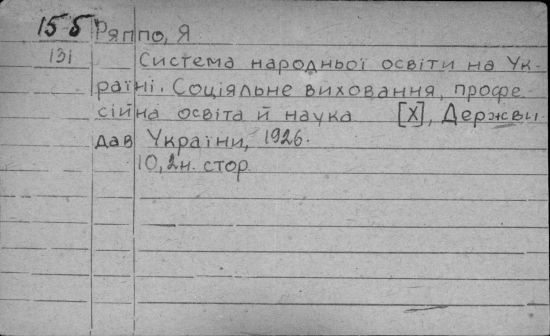 15-б Ряппо, Я
131 Система народньої освіти на Ук-
раїні. Соціяльне виховання, профе-
сійна освіта й наука [X], Держви
дав України, 1926.
10, 2н. стор